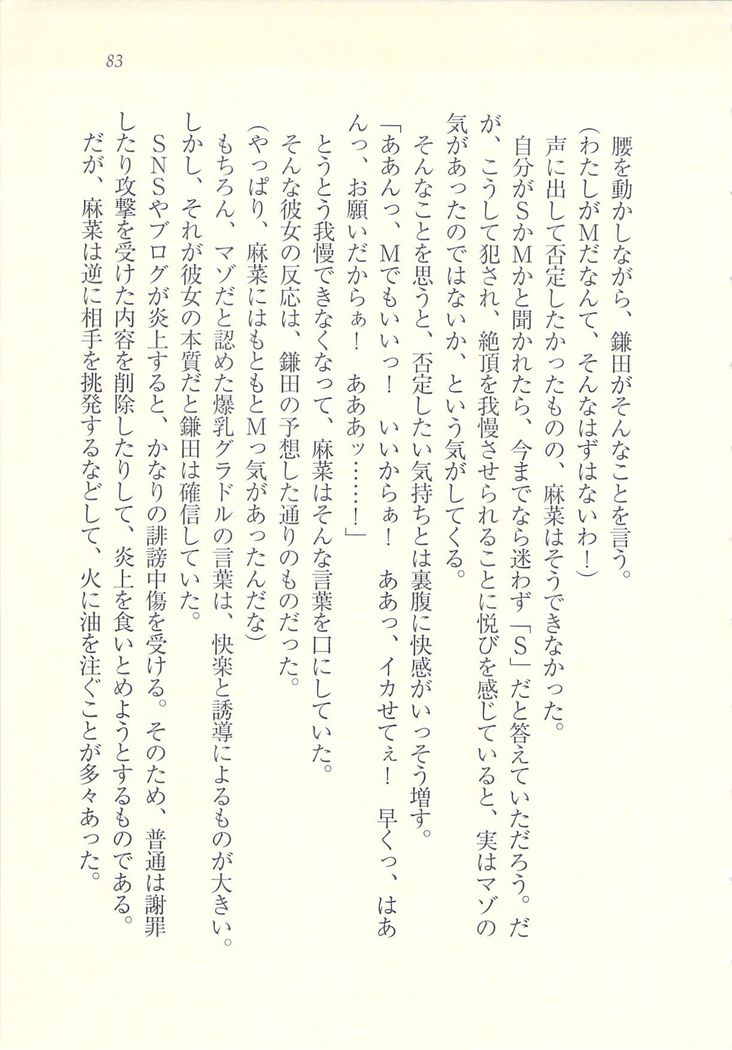 83
腰を動かしながら、鎌田がそんなことを言う。
(わたしがMだなんて、そんなはずはないわ！)
声に出して否定したかったものの、麻菜はそうできなかった。
自分がSかMかと聞かれたら、今までなら迷わず「S」だと答えていただろう。だ
が、こうして犯され、絶頂を我慢させられることに悦びを感じていると、実はマゾの
気があったのではないか、という気がしてくる。
そんなことを思うと、否定したい気持ちとは裏腹に快感がいっそう増す。
「ああんっ、Mでもいいっ！　いいからぁ！　ああっ、イカせてぇ！　早くっ、はあ
んっ、お願いだからぁ！　あああッ……！」
とうとう我慢できなくなって、麻菜はそんな言葉を口にしていた。
そんな彼女の反応は、鎌田の予想した通りのものだった。
(やっぱり、麻菜にはもともとMっ気があったんだな)
もちろん、マゾだと認めた爆乳グラドルの言葉は、快楽と誘導によるものが大きい。
しかし、それが彼女の本質だと鎌田は確信していた。
SNSやブログが炎上すると、かなりの誹謗中傷を受ける。そのため、普通は謝罪
したり攻撃を受けた内容を削除したりして、炎上を食いとめようとするものである。
だが、麻菜は逆に相手を挑発するなどして、火に油を注ぐことが多々あった。